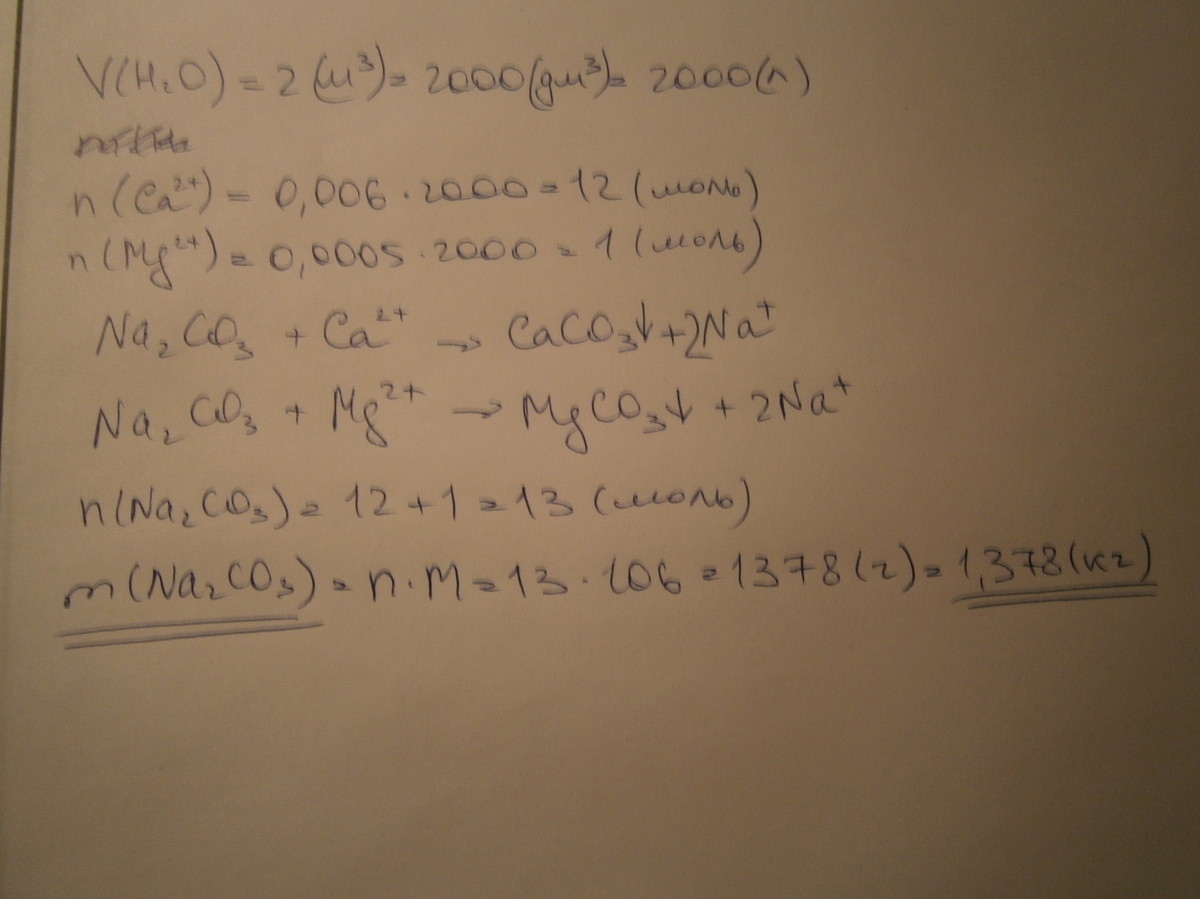 V(H₂O) = 2(м³) = 2000(дм³) = 2000(л)
n(Ca²⁺) = 0,006 · 2000 = 12 (моль)
n(Mg²⁺) = 0,0005 · 2000 = 1 (моль)
Na₂CO₃ + Ca²⁺ → CaCO₃↓ + 2Na⁺
Na₂CO₃ + Mg²⁺ → MgCO₃↓ + 2Na⁺
n(Na₂CO₃) = 12 + 1 = 13 (моль)
m(Na₂CO₃) = n · M = 13 · 106 = 1378 (г) = 1,378 (кг)